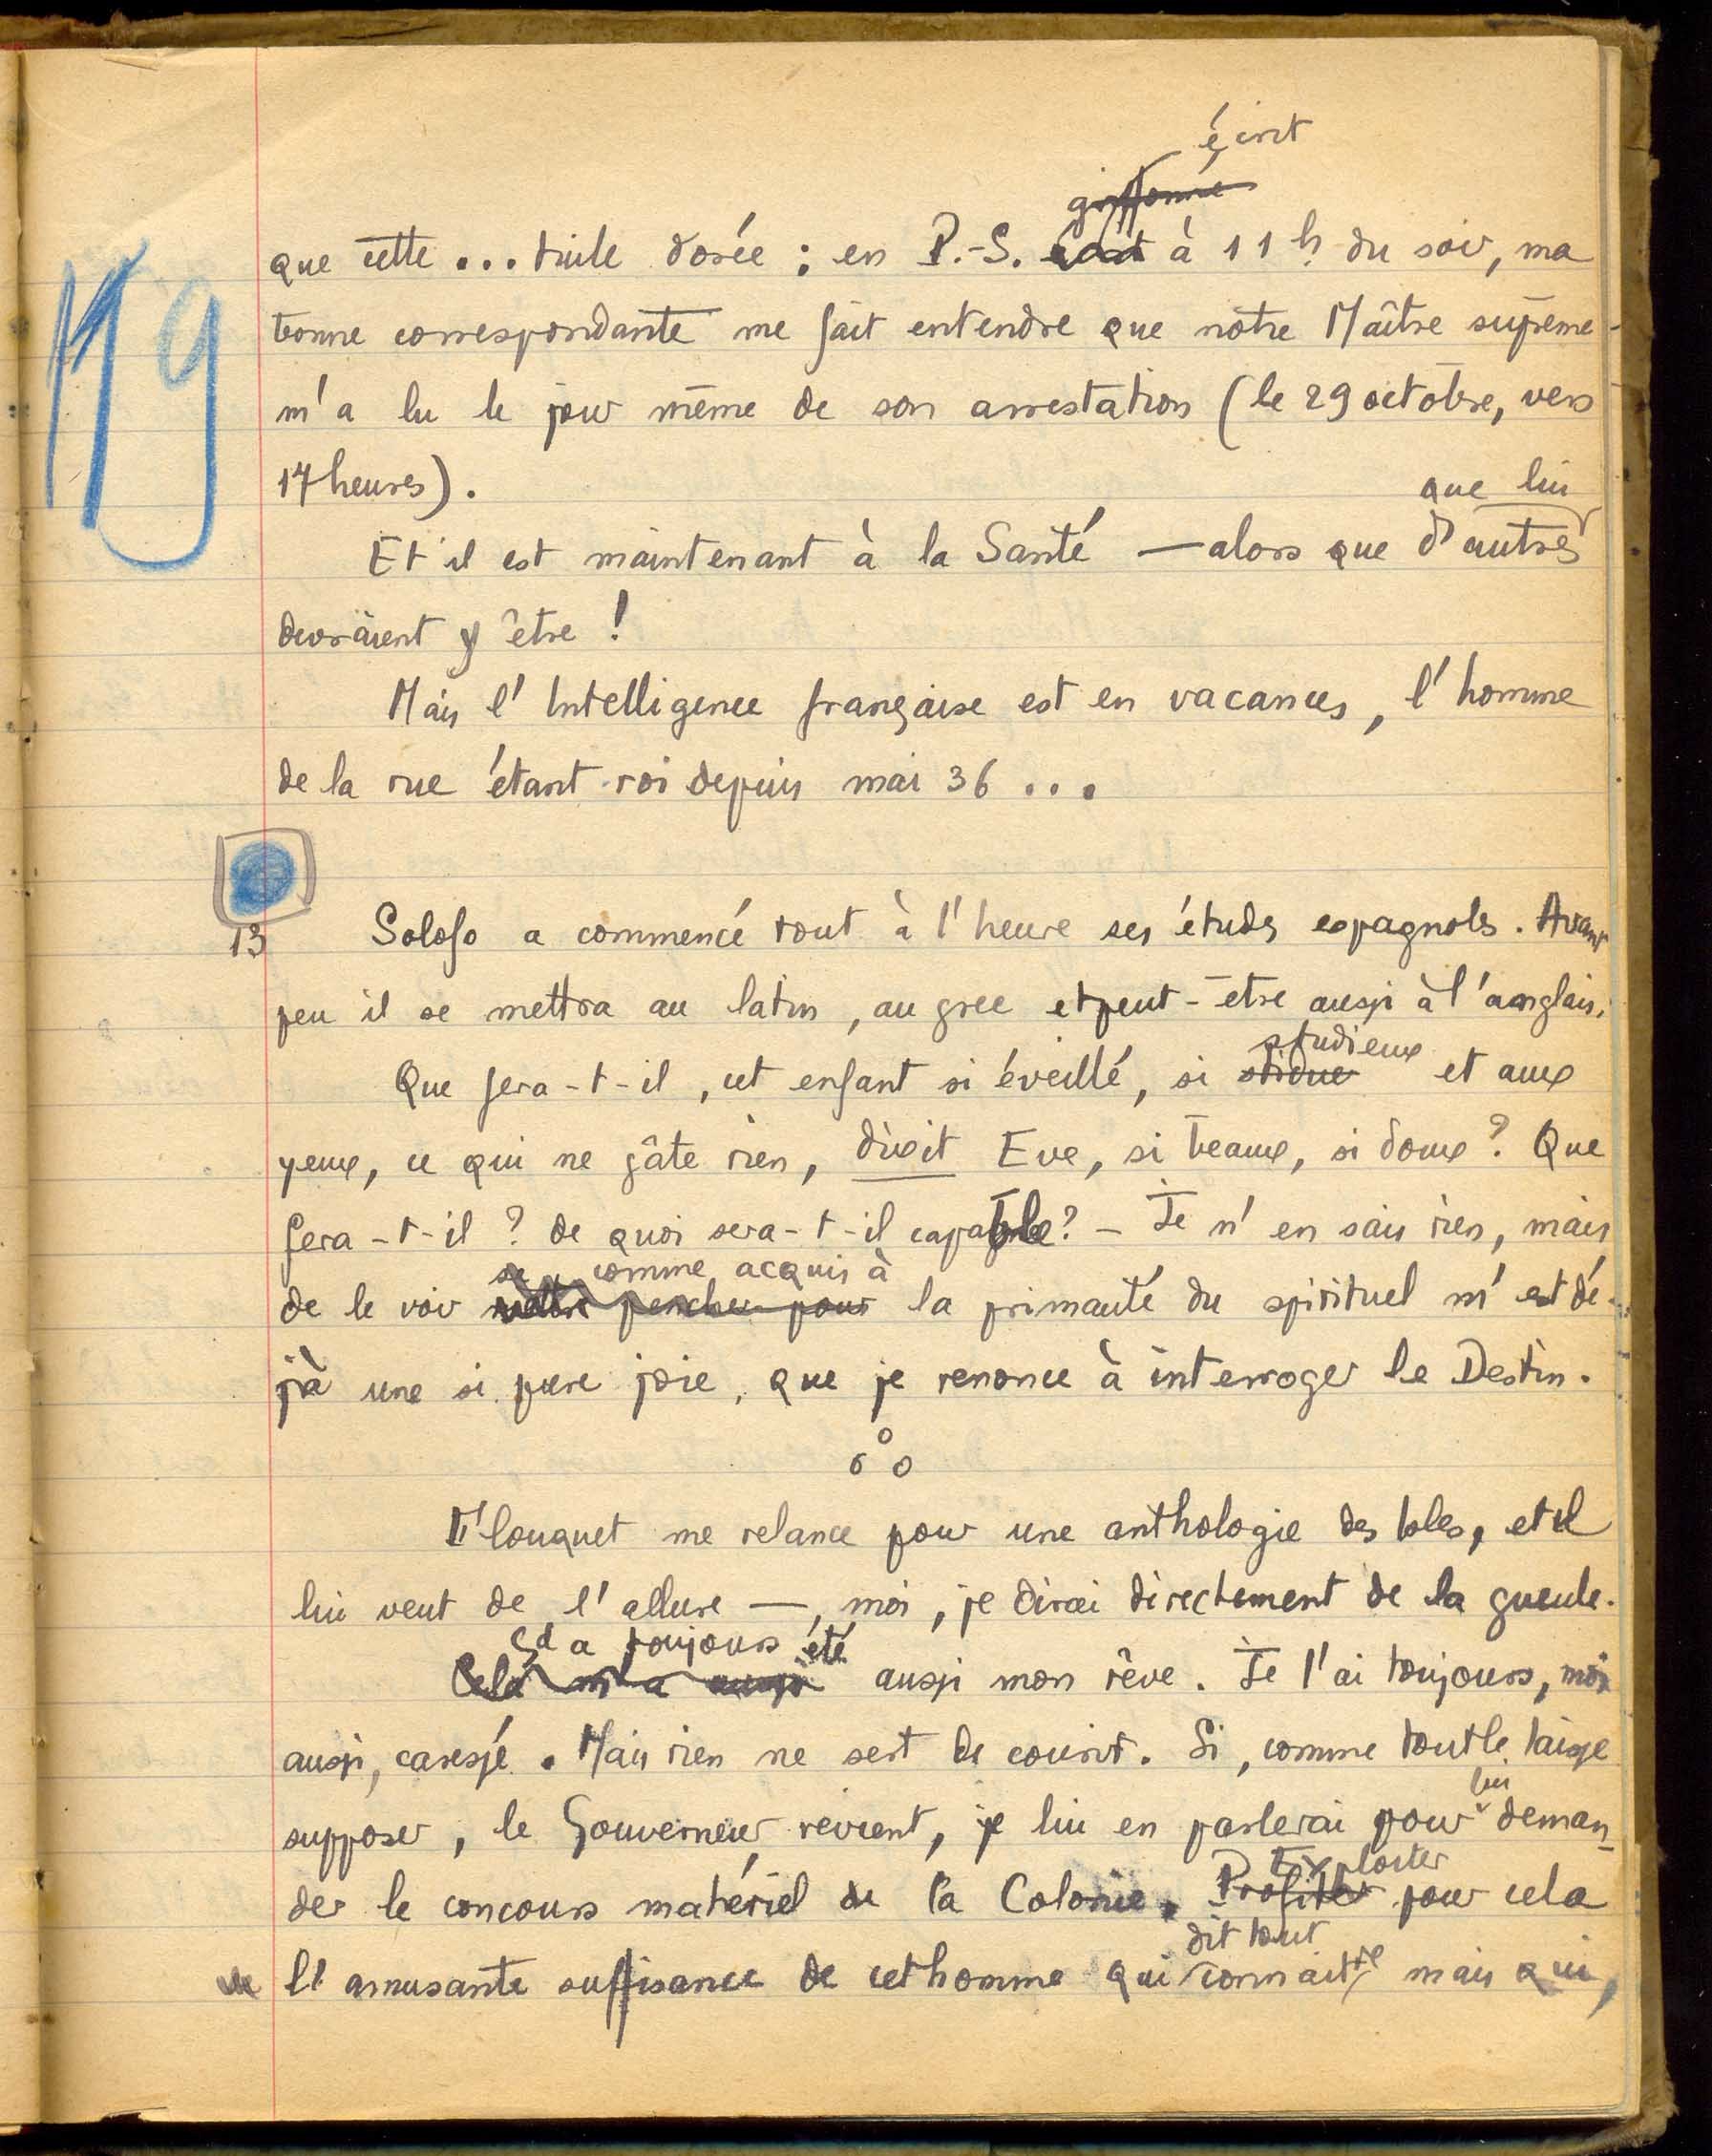 écrit
griffonné
que cette ... tuile dorée : en P.-S. à 11 h. du soir, ma
bonne correspondante me fait entendre que notre Maître suprême
m'a lu le jour même de son arrestation (le 29 octobre, vers
17 heures).
Et il est maintenant à la Santé — alors que d'autres que lui
devraient y être !
Mais l'Intelligence française est en vacances, l'homme
de la rue étant roi depuis mai 36 ...
19
13 Solofo a commencé tout à l'heure ses études espagnoles. Avant
peu il se mettra au latin, au grec et peut-être aussi à l'anglais.
Que fera-t-il, cet enfant si éveillé, si studieux et aux
yeux, ce qui ne gâte rien, dixit Eve, si beaux, si doux ? Que
fera-t-il ? de quoi sera-t-il capable ? — Je n'en sais rien, mais
de le voir comme acquis à la primauté du spirituel m'est dé-
jà une si pure joie, que je renonce à interroger le Destin.
Flouquet me relance pour une anthologie des , et il
lui veut de l'allure —, moi, je dirai directement de la gueule.
Ça a toujours été aussi mon rêve. Je l'ai toujours, moi
aussi, caressé. Mais rien ne sert de courir. Si, comme tout le laisse
supposer, le Gouverneur revient, je lui en parlerai pour lui deman-
der le concours matériel de la Colonie. Exploiter pour cela
l'amusante suffisance de cet homme qui dit tout connaître mais qui,